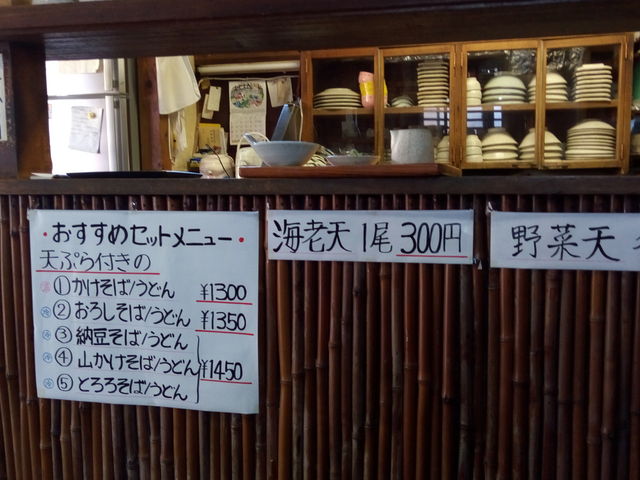 ・おすすめセットメニュー・
天ぷら付きの
温 ①かけそば/うどん ¥1300
冷 ②おろしそば/うどん ¥1350
冷 ③納豆そば/うどん
冷 ④山かけそば/うどん ¥1450
冷 ⑤とろろそば/うどん
海老天 1尾 300円
野菜天